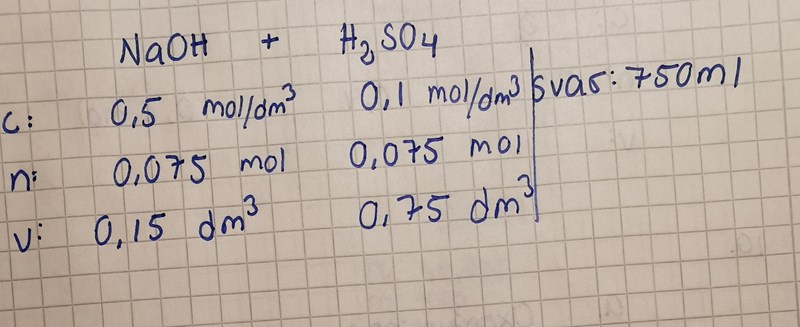 NaOH + H₂SO4
c: 0,5 mol/dm³ 0,1 mol/dm³ svar: 750ml
n: 0,075 mol 0,075 mol
v: 0,15 dm³ 0,75 dm³